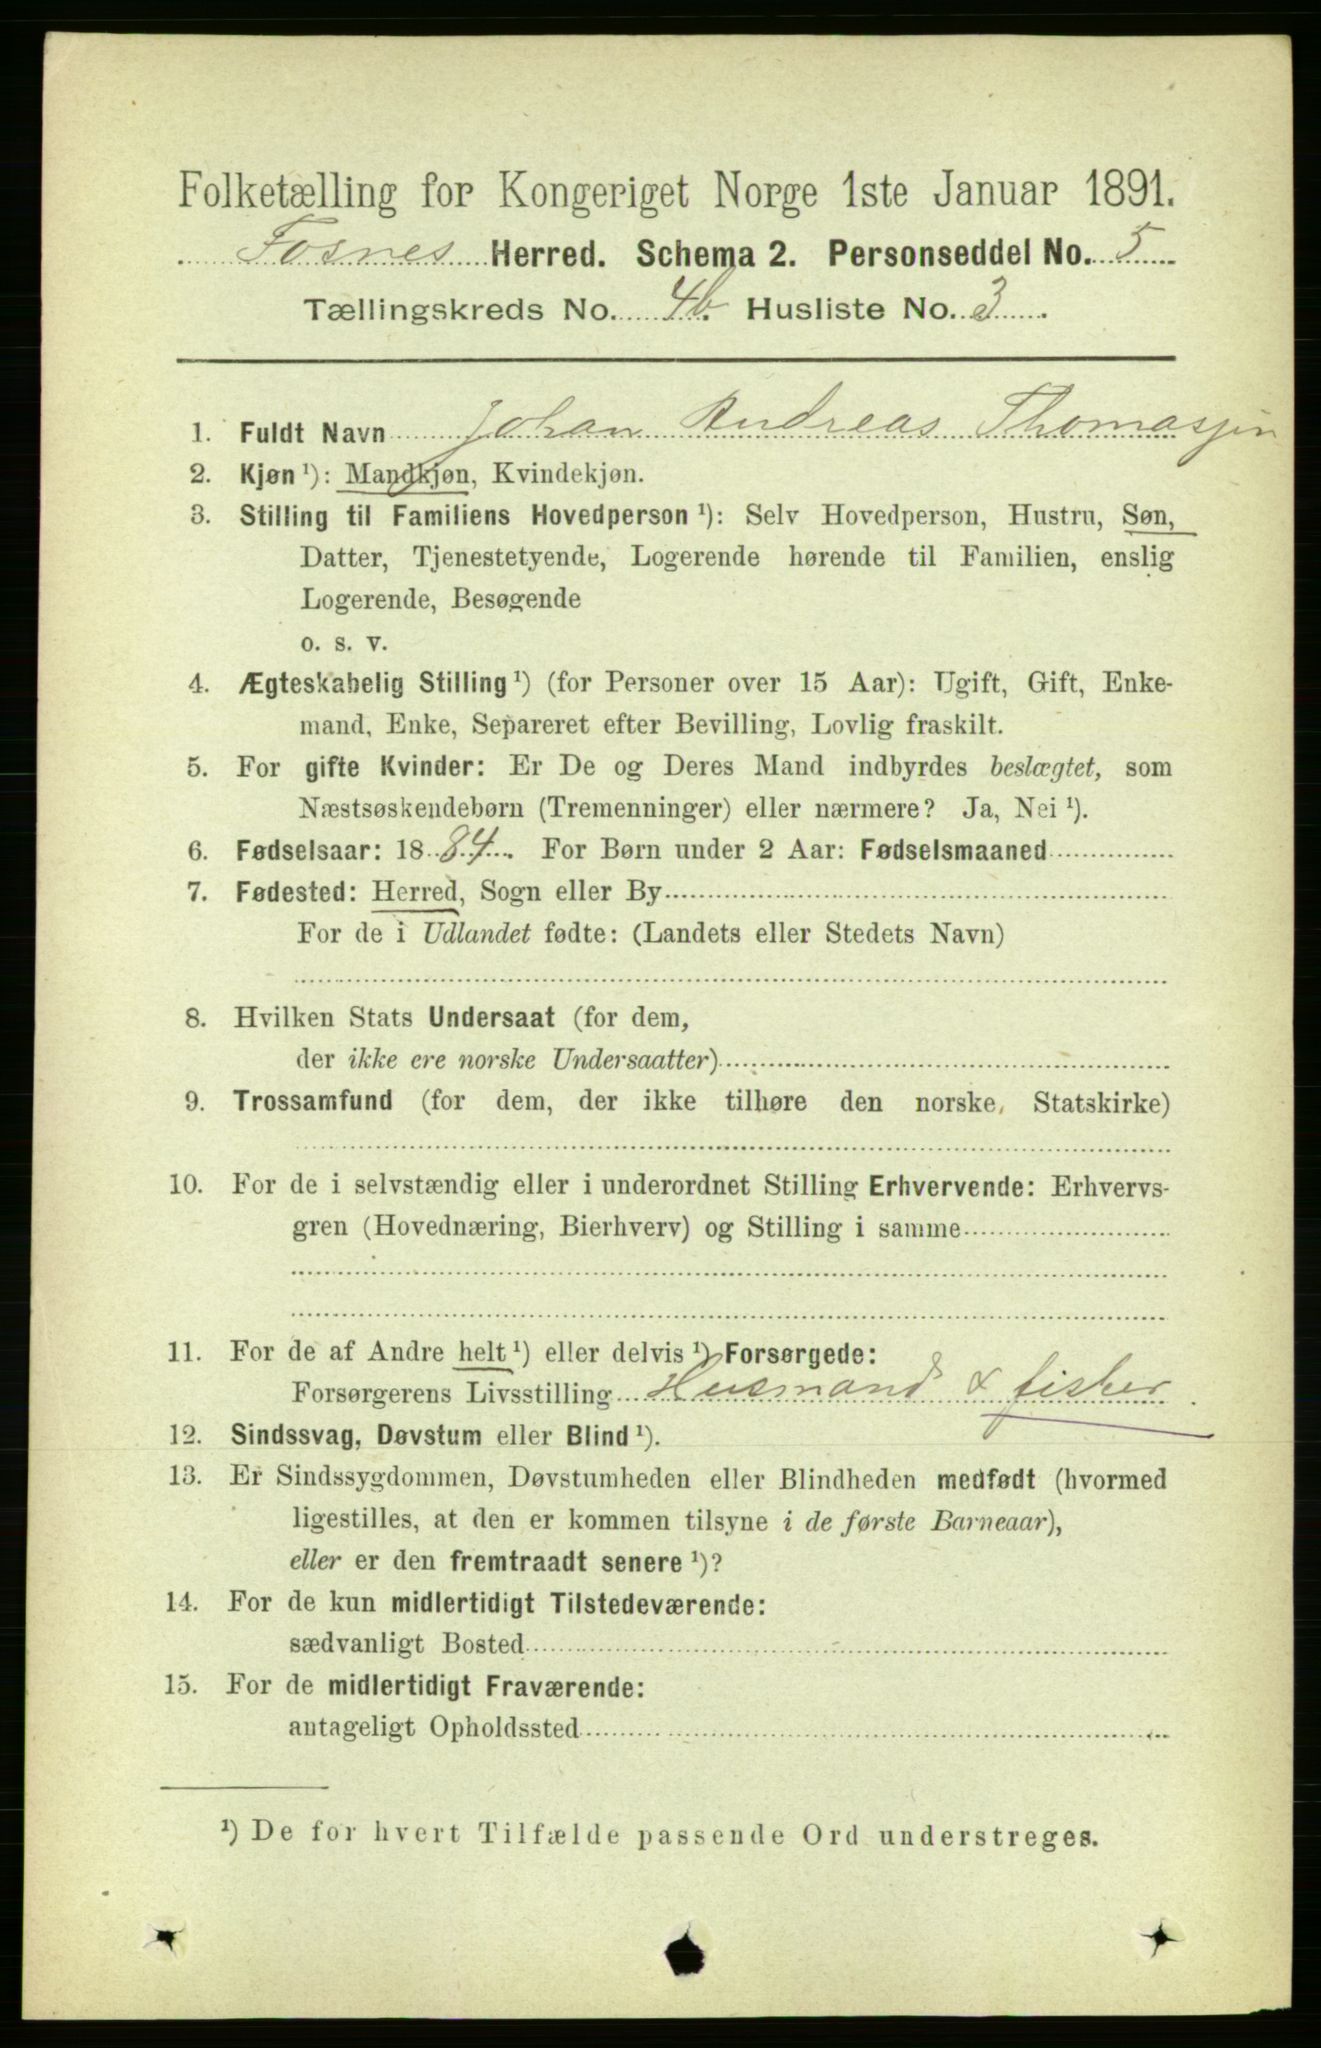 Folketælling for Kongeriget Norge 1ste Januar 1891.
Fosnes Herred. Schema 2. Personseddel No. 5
Tællingskreds No. 4b. Husliste No. 3
1. Fuldt Navn Johan Andreas Thomassen
2. Kjøn ¹): Mandkjøn, Kvindekjøn.
3. Stilling til Familiens Hovedperson ¹): Selv Hovedperson, Hustru, Søn,
Datter, Tjenestetyende, Logerende hørende til Familien, enslig
Logerende, Besøgende
o. s. v.
4. Ægteskabelig Stilling ¹) (for Personer over 15 Aar): Ugift, Gift, Enke-
mand, Enke, Separeret efter Bevilling, Lovlig fraskilt.
5. For gifte Kvinder: Er De og Deres Mand indbyrdes beslægtet, som
Næstsøskendebørn (Tremenninger) eller nærmere? Ja, Nei ¹).
6. Fødselsaar: 1884. For Børn under 2 Aar: Fødselsmaaned
7. Fødested: Herred, Sogn eller By
For de i Udlandet fødte: (Landets eller Stedets Navn)
8. Hvilken Stats Undersaat (for dem,
der ikke ere norske Undersaatter)
9. Trossamfund (for dem, der ikke tilhøre den norske Statskirke)
10. For de i selvstændig eller i underordnet Stilling Erhvervende: Erhvervs-
gren (Hovednæring, Bierhverv) og Stilling i samme
11. For de af Andre helt ¹) eller delvis ¹) Forsørgede:
Forsørgerens Livsstilling Husmand & fisker
12. Sindssvag, Døvstum eller Blind ¹).
13. Er Sindssygdommen, Døvstumheden eller Blindheden medfødt (hvormed
ligestilles, at den er kommen tilsyne i de første Barneaar),
eller er den fremtraadt senere ¹)?
14. For de kun midlertidigt Tilstedeværende:
sædvanligt Bosted
15. For de midlertidigt Fraværende:
antageligt Opholdssted
¹) De for hvert Tilfælde passende Ord understreges.